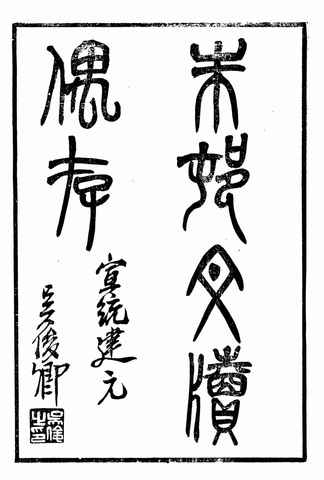 朱邨文牘
偶存
宣統建元
吳俊卿
吳俊之印